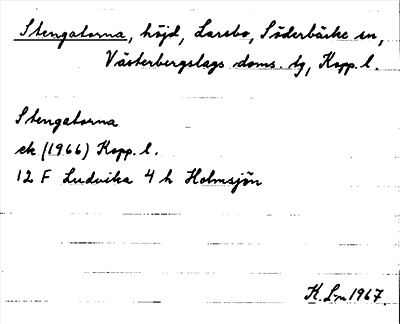 Stengatorna, höjd, Larsbo, Söderbärke sn,
Västerbergslags doms. tg, Kopp. l.
Stengatorna
ek (1966) Kopp. l.
12 F Ludvika 4 h Holmsjön
K. L-n 1967.